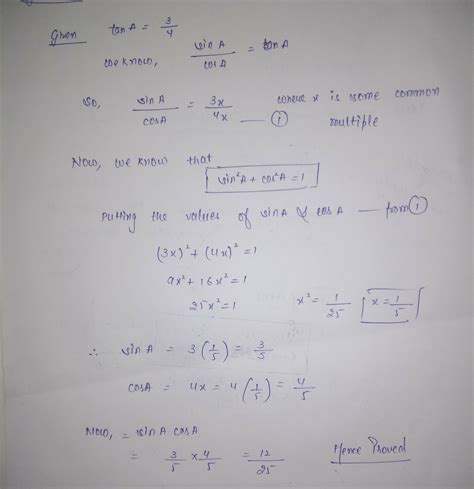 Given tan A = 3/4
we know, sin A / cos A = tan A
So, sin A / cos A = 3x / 4x —— (i) where x is some common multiple
Now, we know that
sin²A + cos²A = 1
Putting the values of sin A & cos A —— from (i)
(3x)² + (4x)² = 1
9x² + 16x² = 1
25x² = 1 x² = 1/25 x = 1/5
∴ sin A = 3(1/5) = 3/5
cos A = 4x = 4(1/5) = 4/5
Now, = sin A cos A
= 3/5 × 4/5 = 12/25 Hence Proved